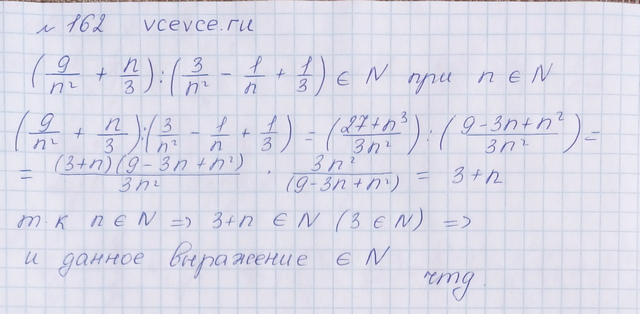 № 162 vcevce.ru
(9/n² + n/3) : (3/n² - 1/n + 1/3) ∈ N при n ∈ N
(9/n² + n/3) : (3/n² - 1/n + 1/3) = ((27+n³)/3n²) : ((9-3n+n²)/3n²) =
= (3+n)(9-3n+n²)/3n² · 3n²/(9-3n+n²) = 3+n
т.к n ∈ N => 3+n ∈ N (3 ∈ N) =>
и данное выражение ∈ N
чтд.